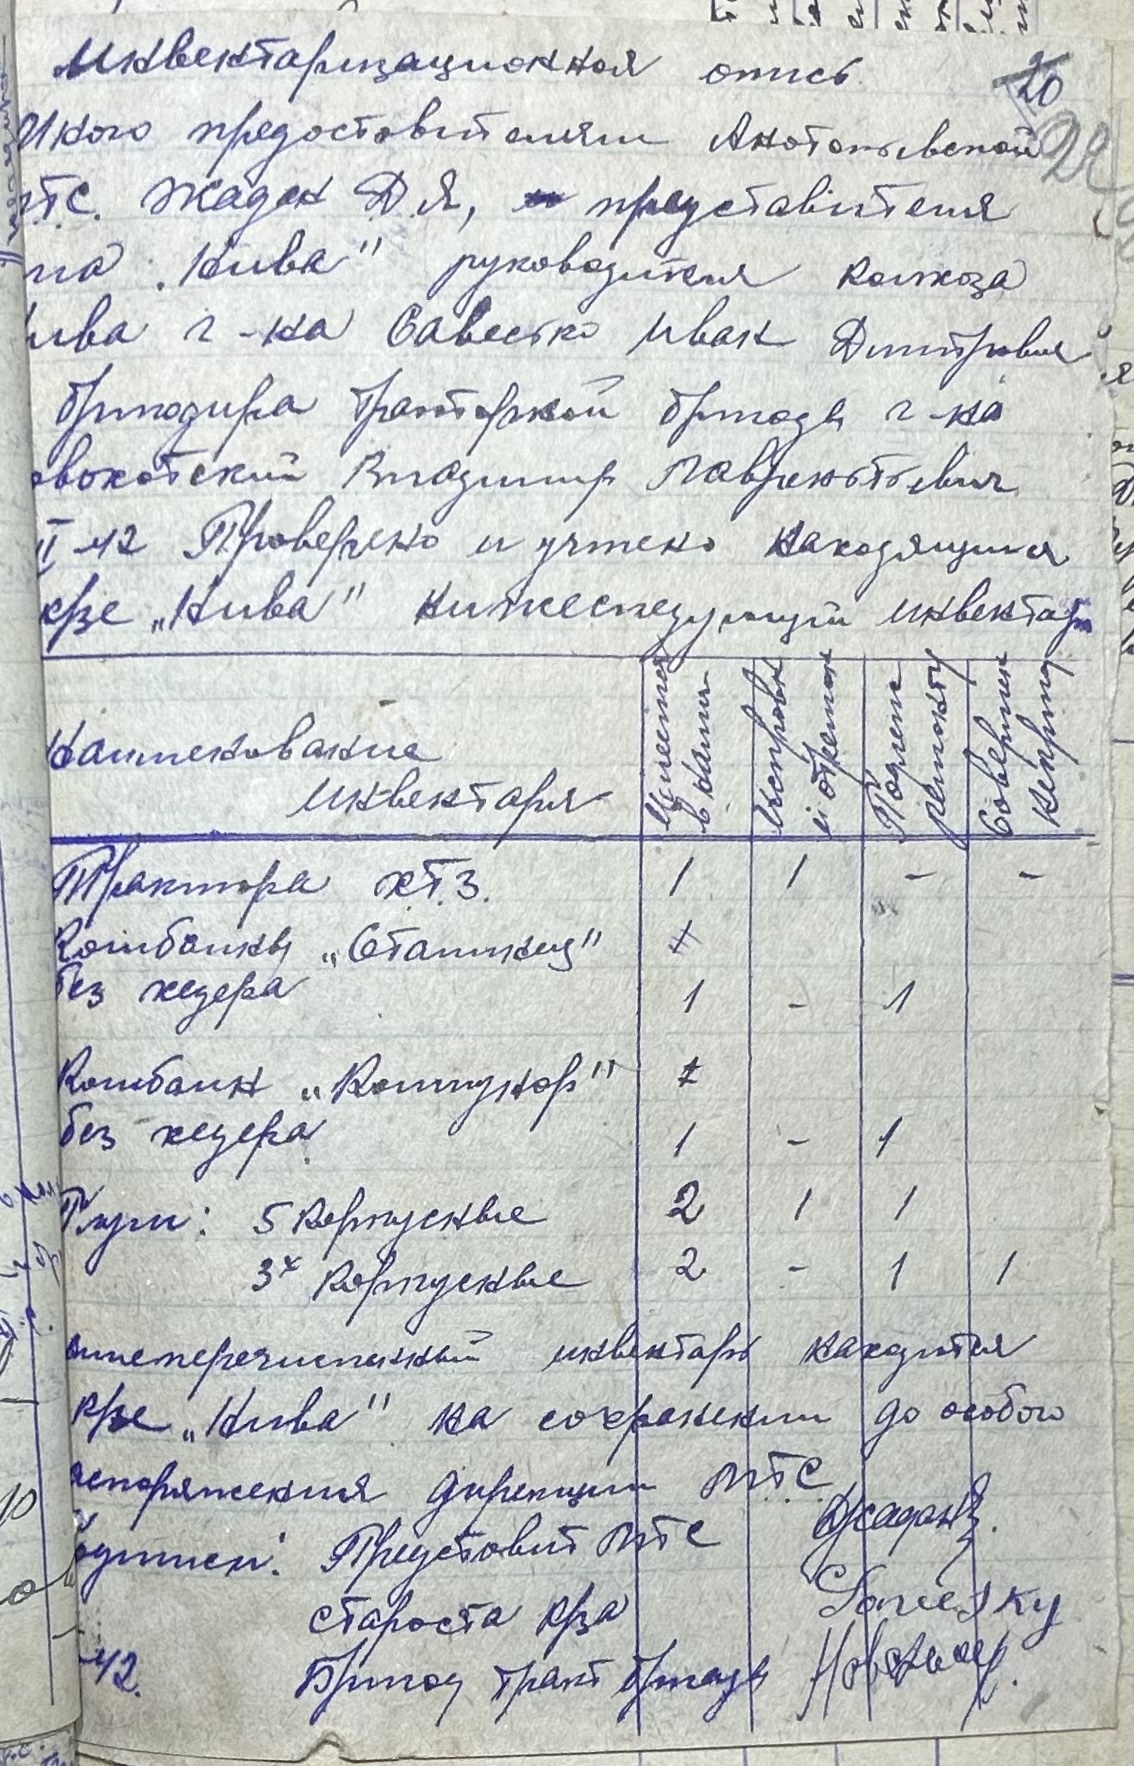 Инвентаризационная опись
20
Мною предоставителям Анатольевской
МТС. Жадан Д.Я, представителя
"Нива" руководителя колхоза
Нива г-на Савенко Иван Дмитровия
бригадира тракторной бригады г-на
Владимир Лаврентьевия
II-42 Проверено и учтено находящийся
крзе „Нива" нижеследующий инвентарь
Наименование
инвентаря
Имеется
в налич
Исправн
и отремон
Подлеж
ремонту
Совершен
непригод
Трактора ХТЗ. 1 1 - -
Комбайны „Сталинец"
без хедера 1 - 1
Комбайн „Коммунар"
без хедера 1 - 1
Плуги: 5 корпусные 2 1 1
3х корпусные 2 - 1 1
вышеперечисленный инвентарь находится
крзе „Нива" на сохранении до особого
распоряжения дирекции МТС
Подписи: Представит МТС Жадан
староста крза
42. Бригад тракт бригады